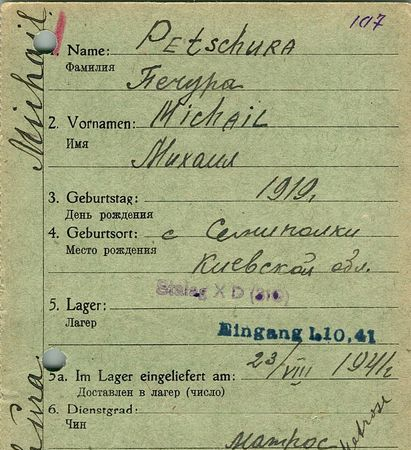 107
1. Name: PEtSCHURA
Фамилия
Печура
2. Vornamen: MichAIL
Имя
Михаил
3. Geburtstag: 1919г
День рождения
4. Geburtsort: с Семиполки
Место рождения
Киевской обл.
Stalag X D (310)
5. Lager:
Лагер
Eingang 1.10.41
23/VIII 1941г
5a. Im Lager eingeliefert am:
Доставлен в лагер (число)
6. Dienstgrad:
Чин
Матрос
Matrose
Michail